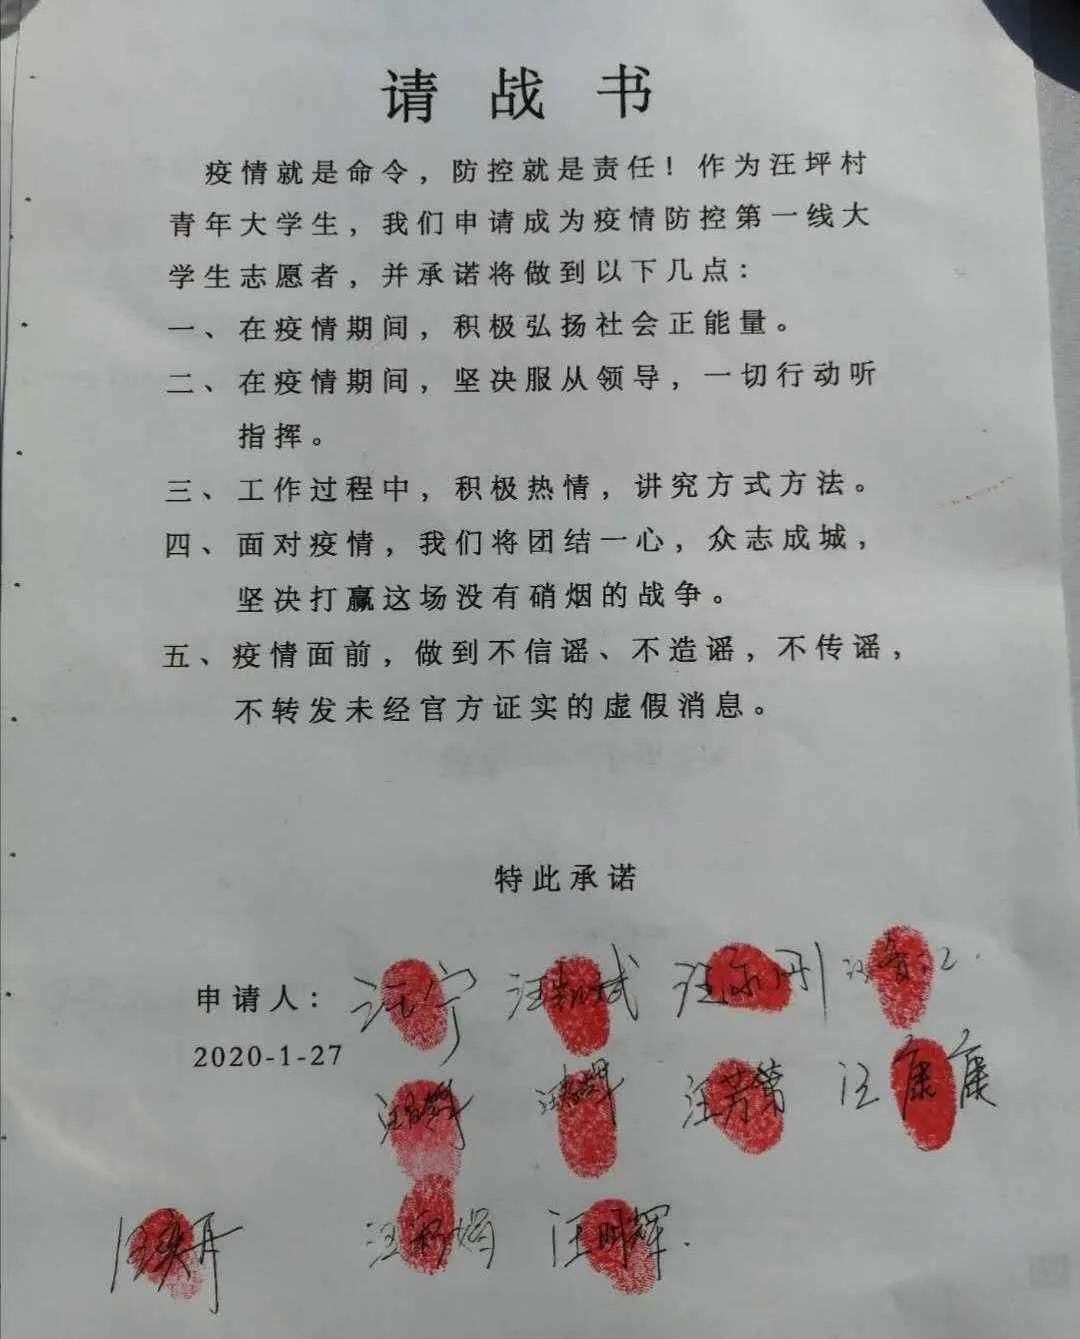 请战书
疫情就是命令，防控就是责任！作为汪坪村
青年大学生，我们申请成为疫情防控第一线大
学生志愿者，并承诺将做到以下几点：
一、在疫情期间，积极弘扬社会正能量。
二、在疫情期间，坚决服从领导，一切行动听
指挥。
三、工作过程中，积极热情，讲究方式方法。
四、面对疫情，我们将团结一心，众志成城，
坚决打赢这场没有硝烟的战争。
五、疫情面前，做到不信谣、不造谣，不传谣，
不转发未经官方证实的虚假消息。
特此承诺
申请人： 汪宁
2020-1-27
汪康康
汪明辉